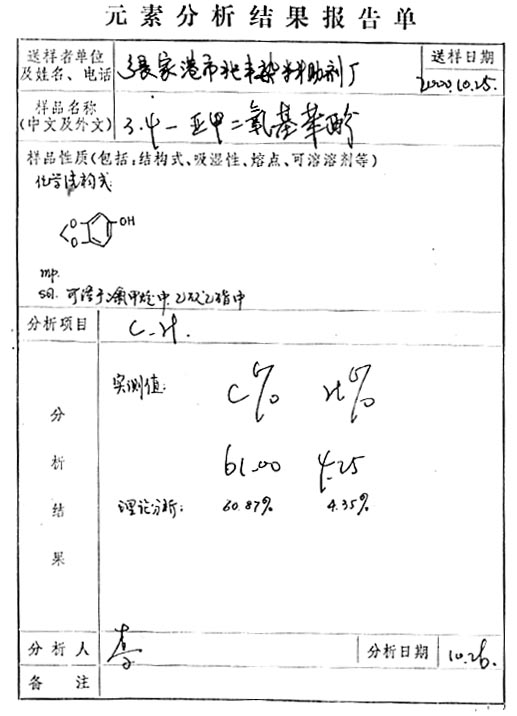 元素分析结果报告单
送样者单位
及姓名、电话
张家港市北丰染料助剂厂
送样日期
2000.10.25.
样品名称
(中文及外文)
3.4-亚甲二氧基苯酚
样品性质(包括:结构式、吸湿性、熔点、可溶溶剂等)
化学结构式:
O
O
OH
mp.
sol. 可溶于氯甲烷中.乙酸乙酯中
分析项目
C.H.
分析结果
实测值: C% H%
61.00 4.25
理论分析: 60.87% 4.35%
分析人
李
分析日期
10.26.
备注